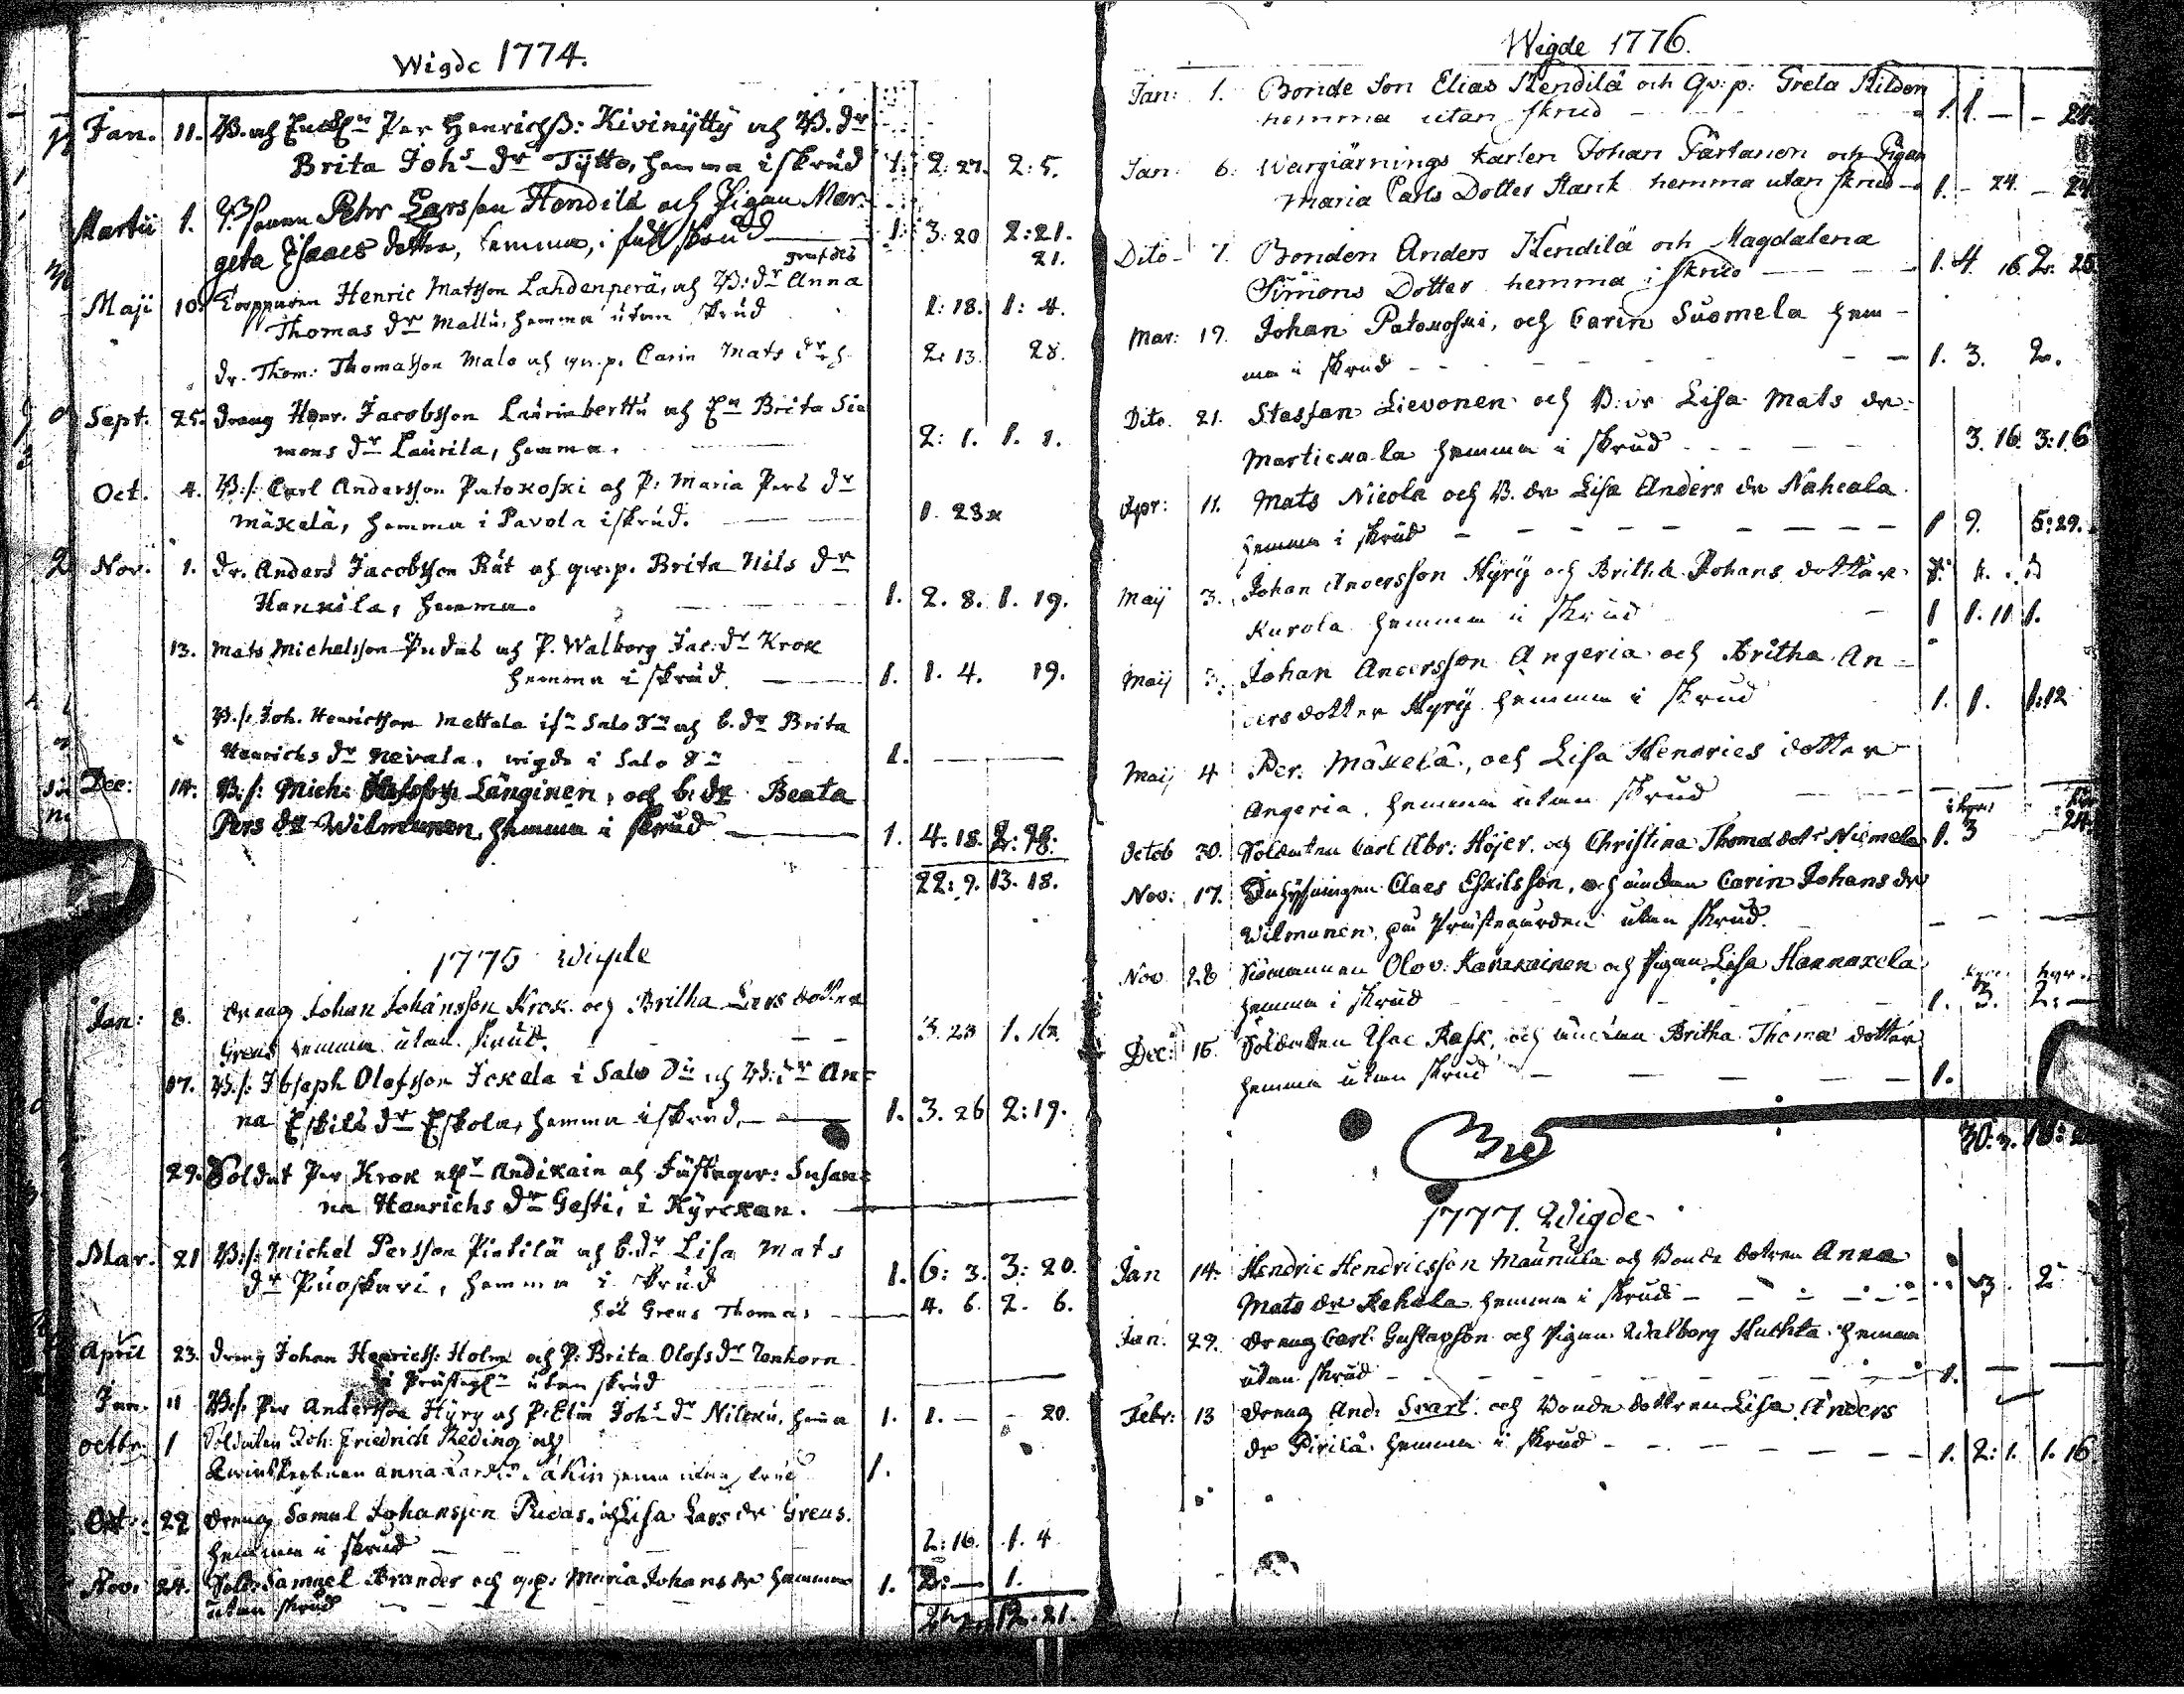 Wigde 1774.
Jan. 11. B. och Enckl:n Per Henrichss: Kivinÿttÿ och B. dr
Brita Joh:s dr Tÿtto, hemma i skrud 1. 2: 27. 2: 5.
Martii 1. B. sonen Pehr Larsson Hendilä och Pigan Mar-
geta Isaacs dotter, hemma, i full skrud 1. 3: 20 2: 21.
21.
Maji 10. Torpparen Henric Matsson Lahdenperä, och B: dr Anna
Thomas dr Mallu, hemma utan skrud 1: 18. 1: 4.
dr. Thom: Thomasson Malo och qv. p. Carin Mats dr h. 2: 13. 28.
Sept. 25. dreng Henr. Jacobsson Lauriinberttu och E:n Brita Si-
mons dr Laurila, hemma. 2: 1. 1. 1.
Oct. 4. B: s: Carl Andersson Patokoski och P: Maria Pers dr
Mäkelä, hemma i Pavola i skrud. 1. 23
Nov. 1. dr. Anders Jacobsson Rät och qv. p. Brita Nils dr
Hannila, hemma. 1. 2. 8. 1. 19.
13. Mats Michelsson Pudas och P. Walborg Jac: dr Krok
hemma i skrud. 1. 1. 4. 19.
B. s: Joh. Henricsson Mettala if:n Salo S:n och b. dr Brita
Henrichs dr Nevala, wigde i Salo S:n 1.
Dec: 14. B: s: Mich: Länginen, och b. dr Beata
Pers dr Wilmunen hemma i skrud 1. 4. 18. 2: 28:
22: 9. 13. 18.
1775 Wigde
Jan: 8. dreng Johan Johansson Krok och Britha Lars dotter
Greus hemma utan skrud. 3. 23 1.
17. B: s: Joseph Olofsson Jokela i Salo och B: dr An-
na Eskils dr Eskola, hemma i skrud. 1. 3. 26 2: 19.
29. Soldat Per Krok Andikain och Fästeqv: Susan-
na Henrichs dr Gästi, i Kÿrckan.
Mar. 21 B: s: Michel Persson Pietilä och b. dr Lisa Mats
dr Puoskari, hemma i skrud 1. 6: 3. 3: 20.
Greus Thomas 4. 6. 2. 6.
April 23. dreng Johan Henrichs: Holm och P: Brita Olofs dr Tenhorn
utan skrud
Jun. 11 B: s: Per Andersson Hÿrÿ och P: Elin Joh:s dr Nileku, hemma 1. 1. — 20.
octbr. 1 Soldaten Joh: Friedrich Reding och
Anna hemma utan skrud 1.
Oct: 22 dreng Samul Johansson Pudas, och Lisa Lars dr Greus.
hemma i skrud 2: 16. 1. 4
Nov. 24. Sold: Samuel Brander och q. p: Maria Johans dr hemma 1. 2: — 1.
utan skrud 12. 21.
Wigde 1776.
Jan: 1. Bonde Son Elias Hendilä och Qv: p: Greta Kilden
hemma utan skrud 1. 1. — 24.
Jan: 6. Wargiärnings karlen Johan Färlanen och Pigan
Maria Carls Dotter Hank hemma utan skrud 1. — 24. — 24.
Dito 7. Bonden Anders Hendilä och Magdalena
Simons Dotter hemma i skrud 1. 4. 16. 2. 25.
Mar: 17. Johan Patokoski, och Carin Suomela hem-
ma i skrud 1. 3. 2.
Dito. 21. Staffan Lievonen och B: dr Lisa Mats dr
Martickala hemma i skrud 3. 16. 3: 16
Apr: 11. Mats Nicola och B. dr Lisa Anders dr Nahcala
hemma i skrud 1 9. 5: 29.
Maij 3. Johan Andersson Hÿrÿ och Britha Johans dotter
Kurola hemma i skrud 1 1. 11 1.
Maij 3. Johan Andersson Angeria och Britha An-
ders dotter Hÿrÿ hemma i skrud 1. 1. 1: 12
Maij 4 Per. Mäkelä, och Lisa Hendrics dotter
Angeria, hemma utan skrud
Octob 30. Soldaten Carl Abr: Höjer. och Christina Thoma dotr Niemela 1. 3 24.
Nov: 17. Inhÿsingen Claes Eskilsson, och änckan Carin Johans dr
Wilmunen, på Prästegården utan skrud.
Nov 28 Siömannen Olov: Karikainen och Pigan Lisa Hannukela
hemma i skrud 1. 3. 2: —
Dec: 15. Soldaten Isac Rask, och änckan Britha Thoma dotter
hemma utan skrud 1.
30: 3.
1777. Wigde
Jan 14. Hendric Hendricsson Maunula och Bonde dotren Anna
Mats dr Rehula hemma i skrud 3. 2
Jan. 29. dreng Carl Gustavson och Pigan Walborg Huhta hemma
utan skrud 1.
Febr: 13 dreng And: Svart och Bonde dottren Lisa Anders
dr Pirilä. hemma i skrud 1. 2: 1. 1. 16